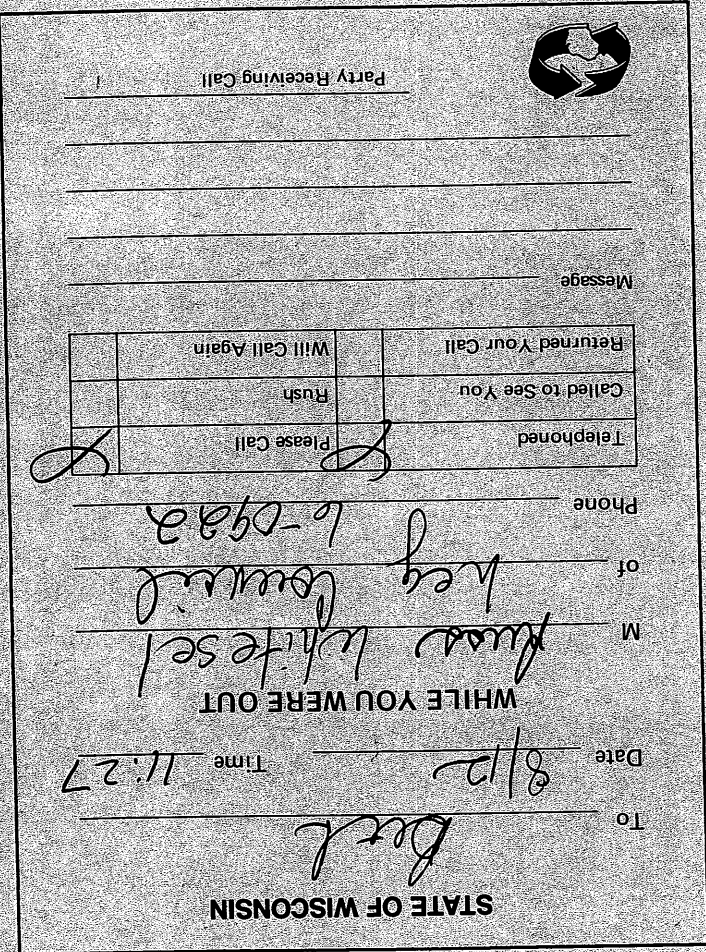 STATE OF WISCONSIN
To Beck
Date 8/12 Time 11:27
WHILE YOU WERE OUT
M Russ Whitesel
of Leg Council
Phone 6-0922
Telephoned Please Call
Called to See You Rush
Returned Your Call Will Call Again
Message
Party Receiving Call